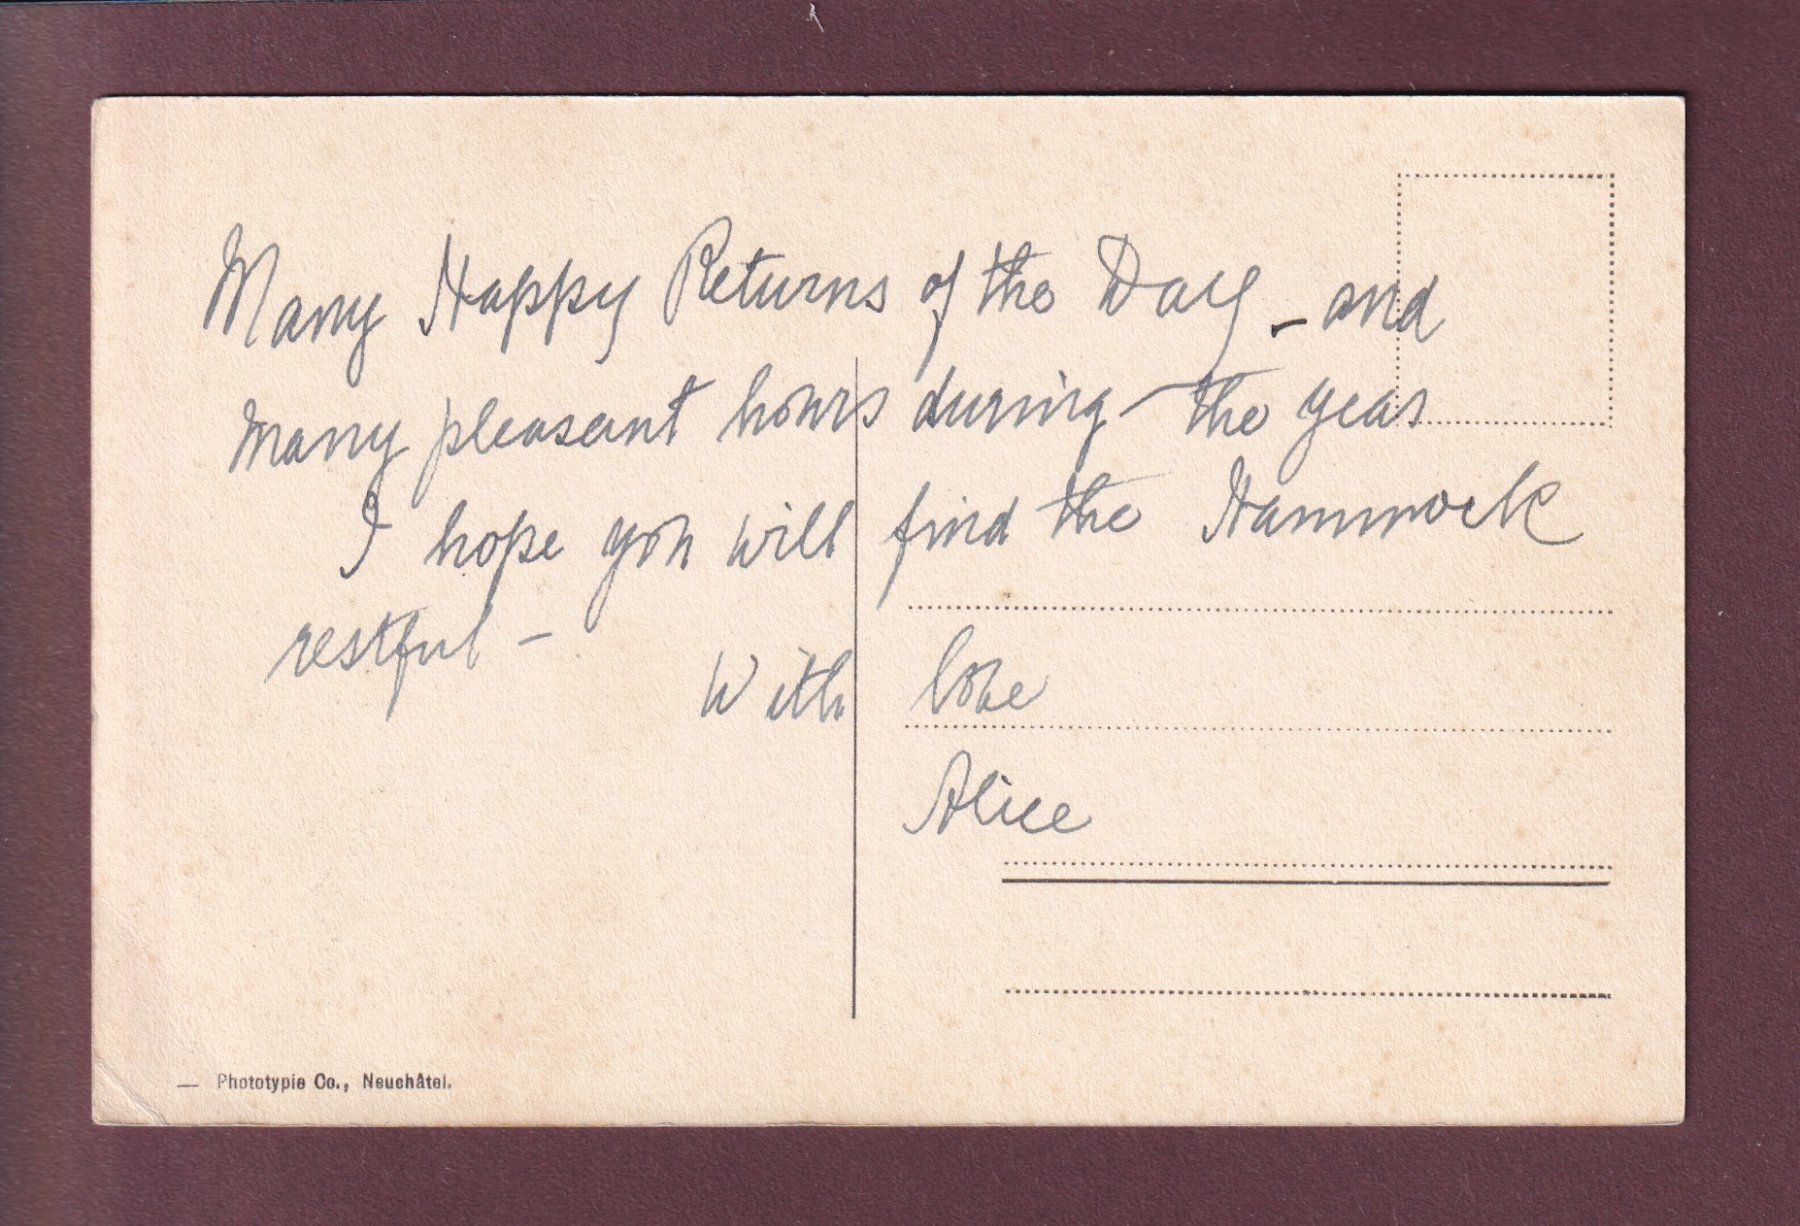 Many Happy Returns of the Day - and
many pleasant hours during the year
I hope you will find the Hammock
restful -
With love
Alice
— Phototypie Co., Neuchâtel.